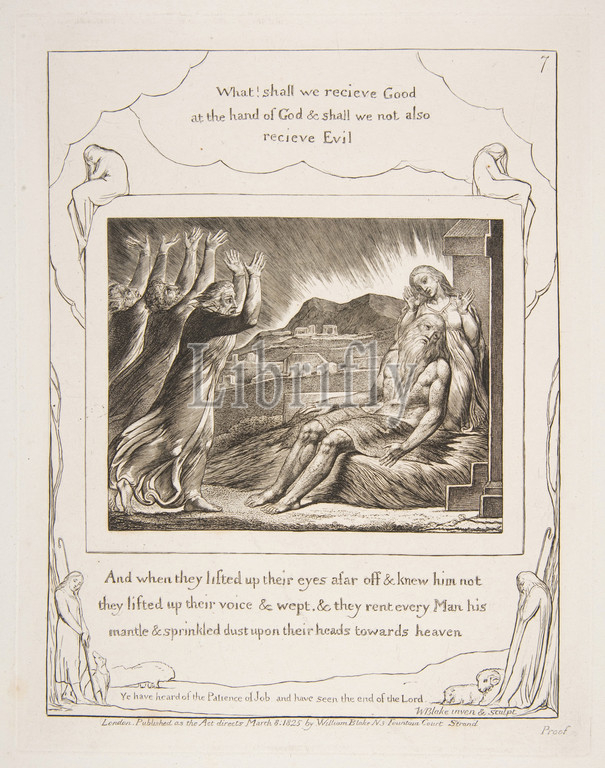 7
What! shall we recieve Good
at the hand of God & shall we not also
recieve Evil
Librifly
And when they lifted up their eyes afar off & knew him not
they lifted up their voice & wept. & they rent every Man his
mantle & sprinkled dust upon their heads towards heaven
Ye have heard of the Patience of Job and have seen the end of the Lord
WBlake inven & sculpt
London. Published as the Act directs March 8: 1825 by William Blake N3 Fountain Court Strand
Proof